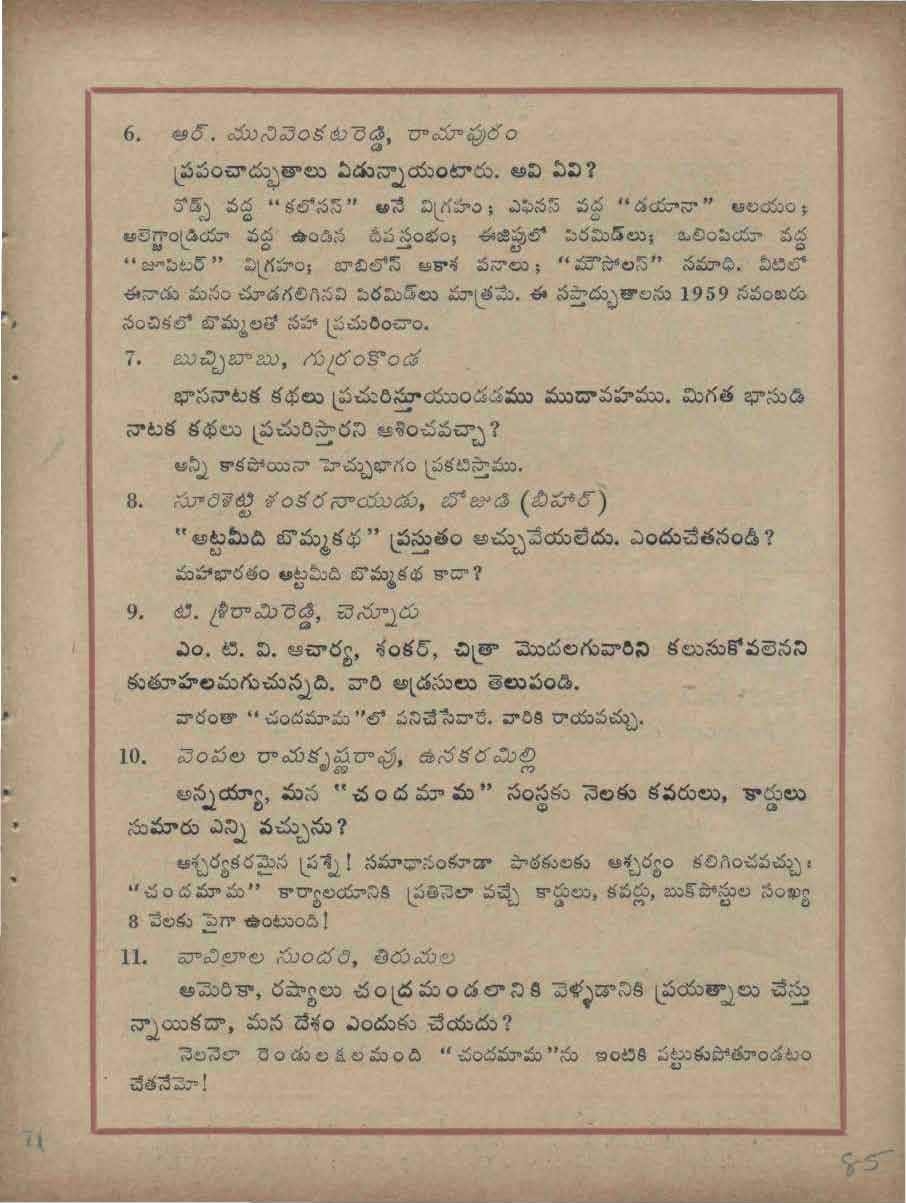 6. ఆర్. మునివెంకటరెడ్డి, రామాపురం
ప్రపంచాద్భుతాలు ఏడున్నాయంటారు. అవి ఏవి?
రోడ్స్ వద్ద "కలోసస్" అనే విగ్రహం; ఎఫిసస్ వద్ద "డయానా" ఆలయం;
అలెగ్జాండ్రియా వద్ద ఉండిన దీపస్తంభం; ఈజిప్టులో పిరమిడ్‌లు; ఒలింపియా వద్ద
"జూపిటర్" విగ్రహం; బాబిలోన్ ఆకాశ వనాలు; "మౌసోలస్" సమాధి. వీటిలో
ఈనాడు మనం చూడగలిగినవి పిరమిడ్‌లు మాత్రమే. ఈ సప్తాద్భుతాలను 1959 నవంబరు
సంచికలో బొమ్మలతో సహా ప్రచురించాం.
7. బుచ్చిబాబు, గుర్రంకొండ
భాసనాటక కథలు ప్రచురిస్తూయుండడము ముదావహము. మిగత భాసుడి
నాటక కథలు ప్రచురిస్తారని ఆశించవచ్చా?
అన్నీ కాకపోయినా హెచ్చుభాగం ప్రకటిస్తాము.
8. సూరిశెట్టి శంకరనాయుడు, బోజుడి (బీహార్)
"అట్టమీది బొమ్మకథ" ప్రస్తుతం అచ్చువేయలేదు. ఎందుచేతనండీ?
మహాభారతం అట్టమీది బొమ్మకథ కాదా?
9. టి. శ్రీరామిరెడ్డి, చెన్నూరు
ఎం. టి. వి. ఆచార్య, శంకర్, చిత్రా మొదలగువారిని కలుసుకోవలెనని
కుతూహలమగుచున్నది. వారి అడ్రసులు తెలుపండి.
వారంతా "చందమామ"లో పనిచేసేవారే. వారికి రాయవచ్చు.
10. వెంపల రామకృష్ణరావు, ఉనకరమిల్లి
అన్నయ్యా, మన "చందమామ" సంస్థకు నెలకు కవరులు, కార్డులు
సుమారు ఎన్ని వచ్చును?
ఆశ్చర్యకరమైన ప్రశ్నే! సమాధానంకూడా పాఠకులకు ఆశ్చర్యం కలిగించవచ్చు:
"చందమామ" కార్యాలయానికి ప్రతినెలా వచ్చే కార్డులు, కవర్లు, బుక్‌పోస్టుల సంఖ్య
8 వేలకు పైగా ఉంటుంది!
11. వావిలాల సుందరి, తిరుమల
అమెరికా, రష్యాలు చంద్రమండలానికి వెళ్ళడానికి ప్రయత్నాలు చేస్తు
న్నాయికదా, మన దేశం ఎందుకు చేయదు?
నెలనెలా రెండులక్షలమంది "చందమామ"ను ఇంటికి పట్టుకుపోతూండటం
చేతనేమో!
71
85